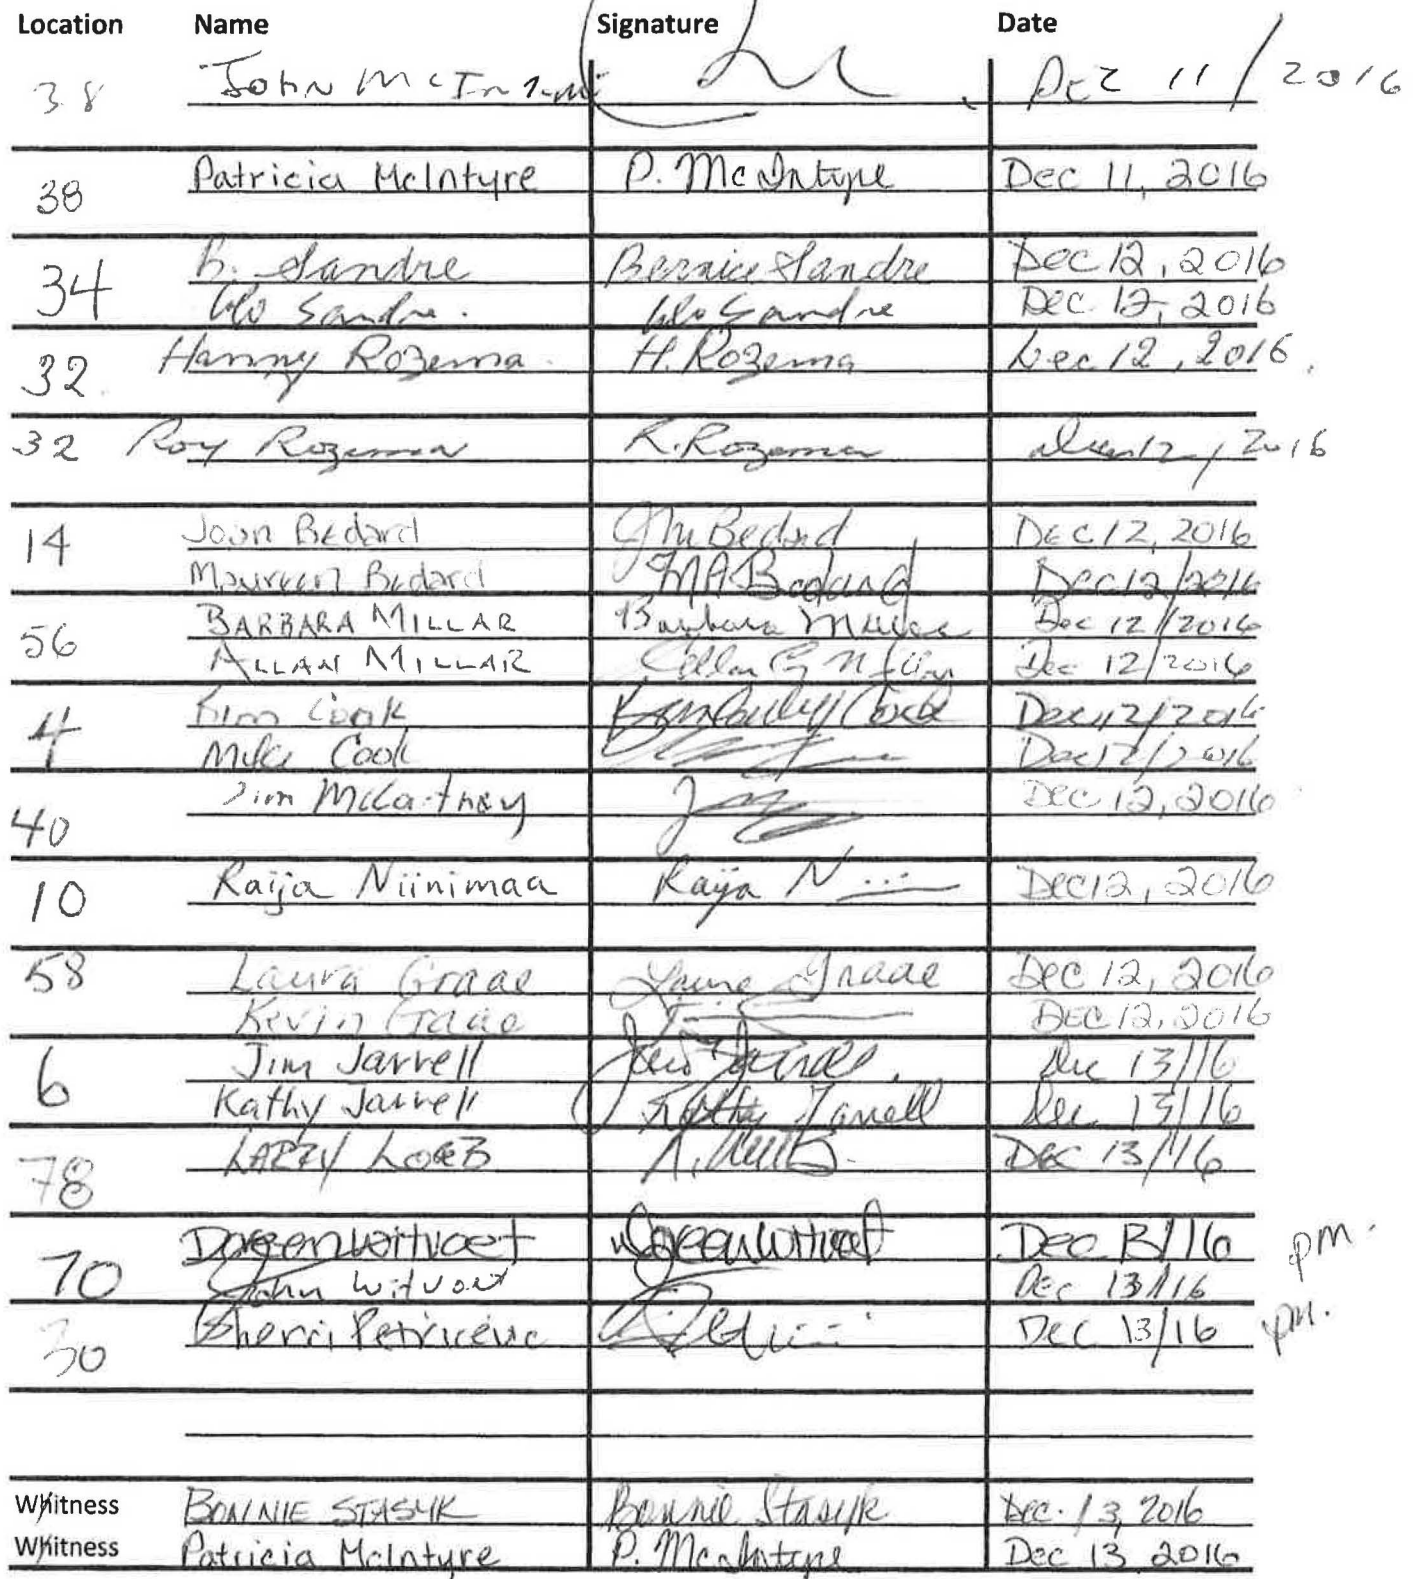 Location Name Signature Date
38 John McIntyre Dec 11/2016
38 Patricia McIntyre P. McIntyre Dec 11, 2016
34 B. Sandre Bernice Sandre Dec 12, 2016
Sandre. Sandre Dec 12, 2016
32. Hanny Rozema. H. Rozema Dec 12, 2016.
32 Roy Rozema R. Rozema Dec 12/2016
14 Joan Bedard JM Bedard DEC 12, 2016
Maureen Bedard MA Bedard Dec 12/2016
56 BARBARA MILLAR Barbara Millar Dec 12/2016
ALLAN MILLAR Allan G Millar Dec 12/2016
4 Kim Cook Kimberley Cook Dec 12/2016
Mike Cook Dec 12/2016
40 Jim McCartney Dec 12, 2016
10 Raija Niinimaa Raija N Dec 12, 2016
58 Laura Graae Laura Graae Dec 12, 2016
Kevin Graae DEC 12, 2016
6 Jim Jarrell Jarrell Dec 13/16
Kathy Jarrell Kathy Jarrell Dec 13/16
78 LARRY LOEB Dec 13/16
70 Doreen Witvoet Doreen Witvoet Dec 13/16 pm.
John Witvoet Dec 13/16
30 Sherri Petricevic Dec 13/16 pm.
Whitness BONNIE STASYK Bonnie Stasyk Dec. 13, 2016
Whitness Patricia McIntyre P. McIntyre Dec 13 2016